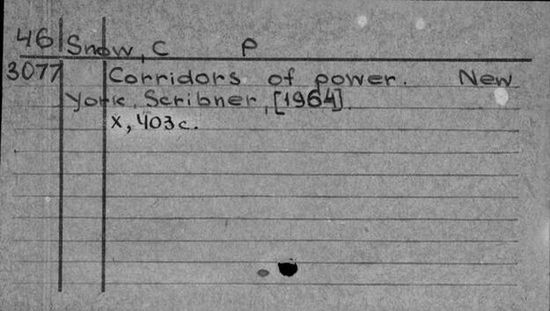 46 Snow, C P
3077 Corridors of power. New
York, Scribner, [1964].
x, 403c.